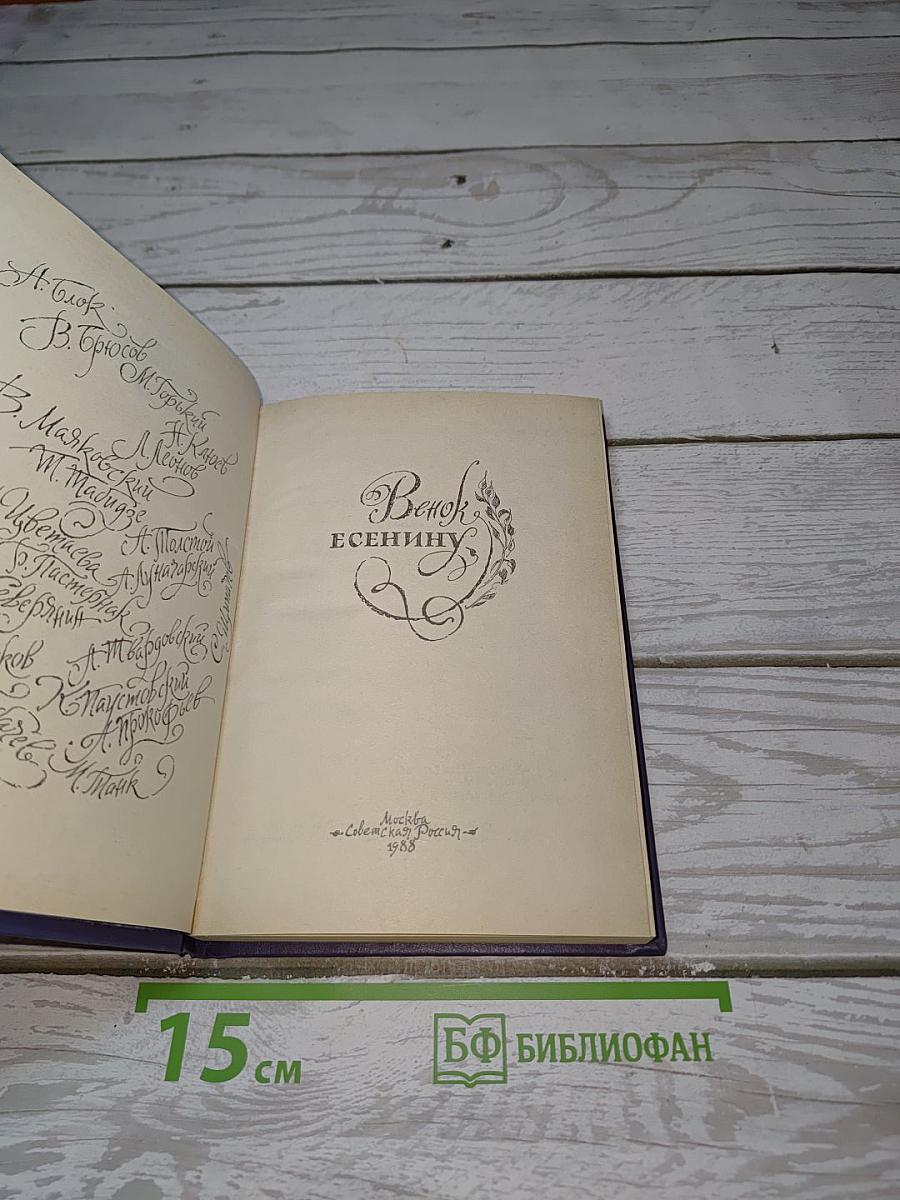 А. Блок
В. Брюсов
М. Горький
Н. Клюев
В. Маяковский
Л. Леонов
Т. Табидзе
Цветаева
А. Толстой
Б. Пастернак
А. Луначарский
Северянин
А. Твардовский
ков
К. Паустовский
А. Прокофьев
М. Танк
Венок
ЕСЕНИНУ
Москва
Советская Россия
1988
15 см
БФ БИБЛИОФАН